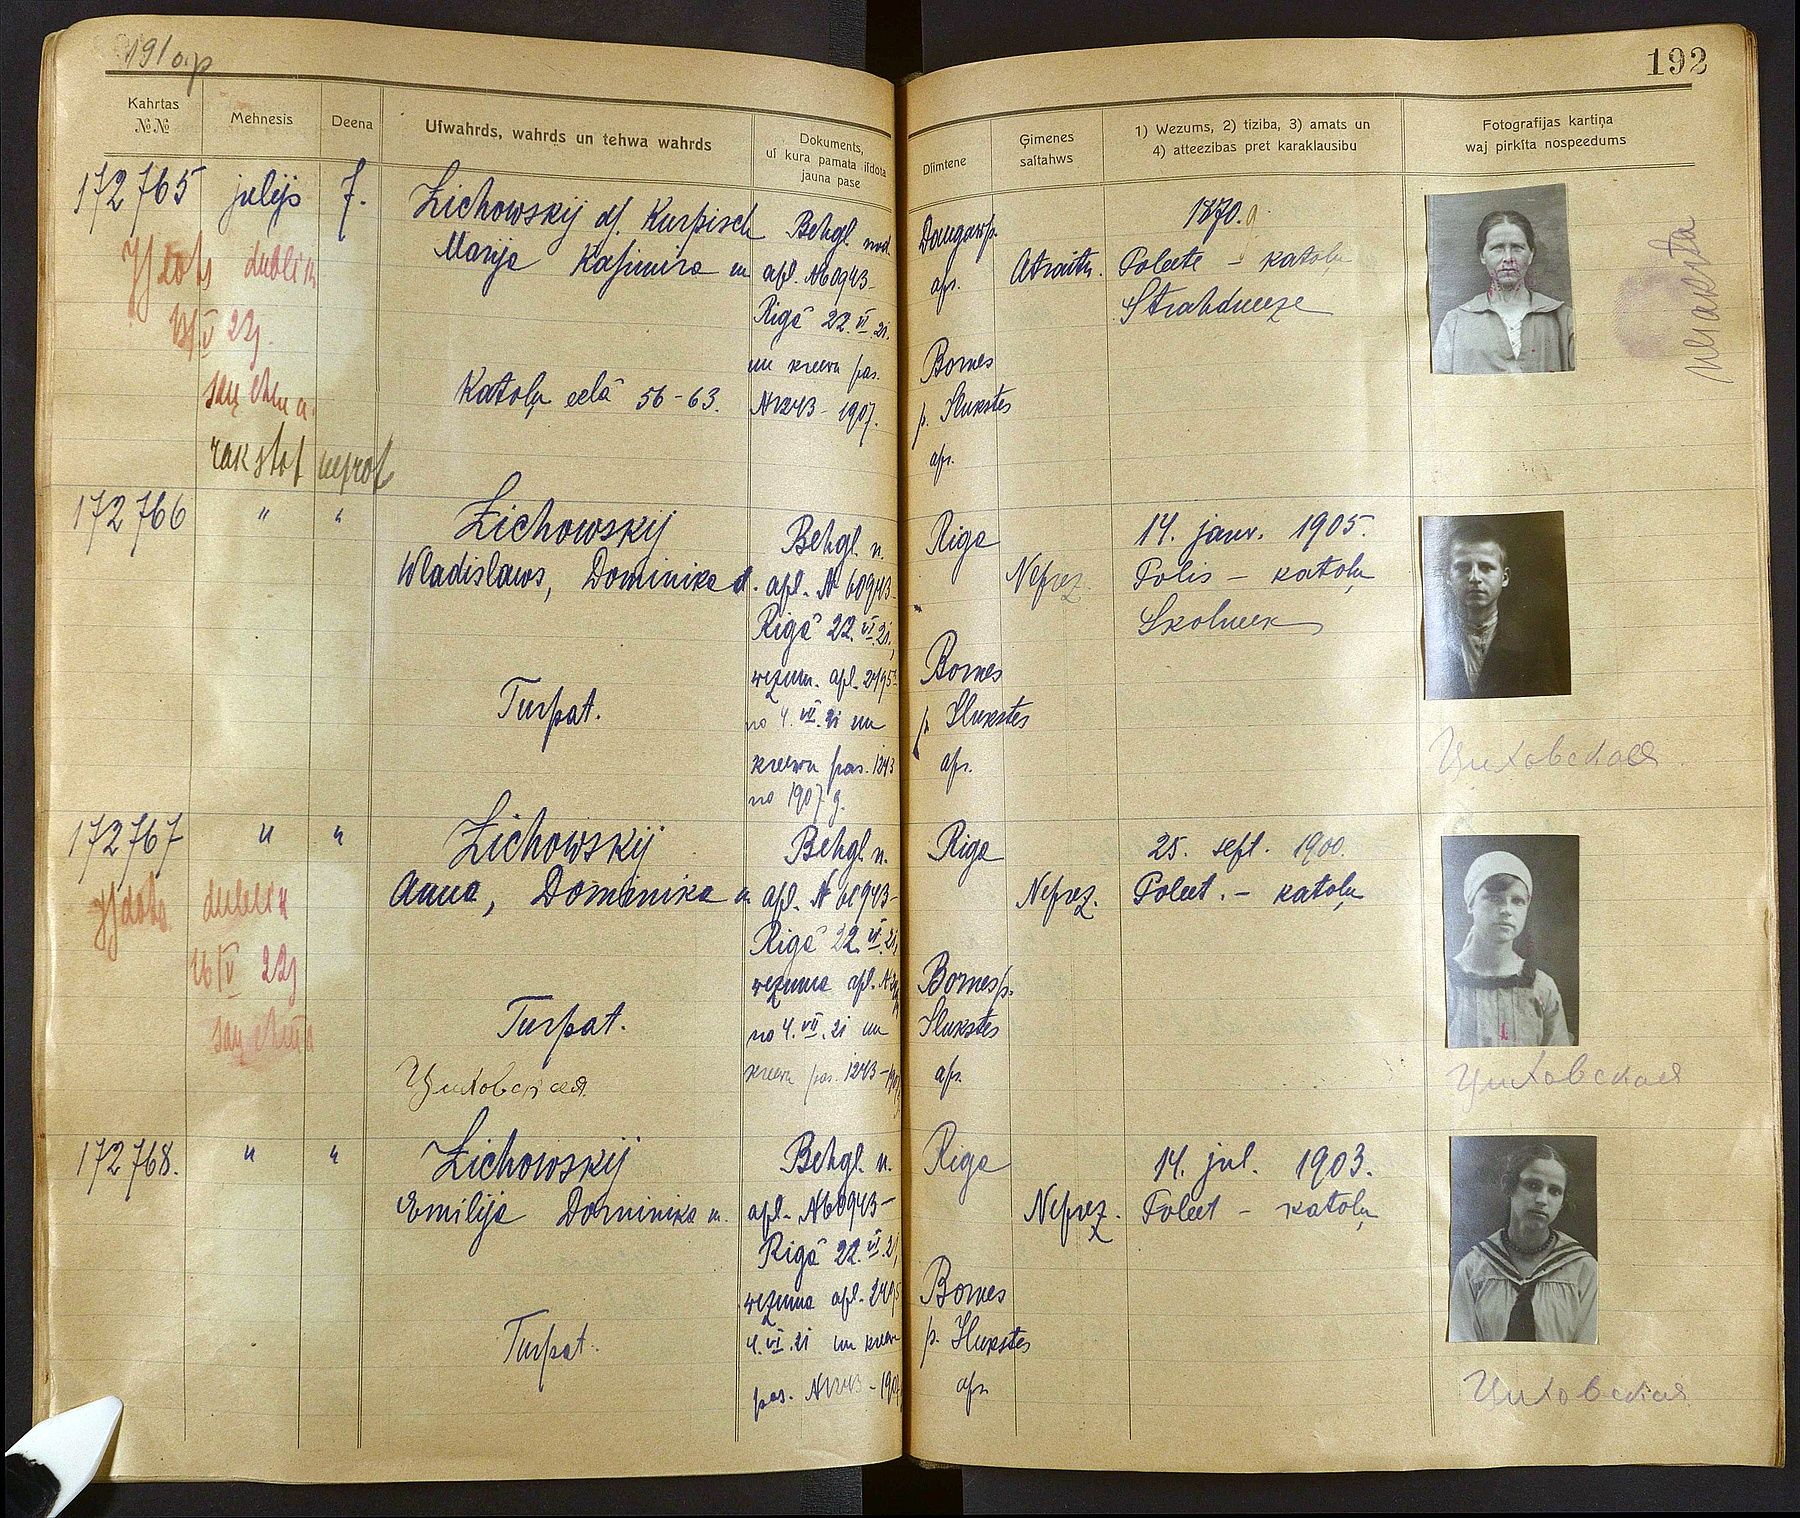 191 o.p.
192
Kahrtas №№
Mehnesis
Deena
Uſwahrds, wahrds un tehwa wahrds
Dokuments,
uſ kura pamata iſdota
jauna pase
Dſimtene
Ģimenes
saitahws
1) Wezums, 2) tiziba, 3) amats un
4) atteezibas pret karaklausibu
Fotografijas kartiņa
waj pirkſta nospeedums
172765 julijs 7.
Zichowskij dſ. Kurpisch
Marija Kasimira m
Katoļu eelā 56-63.
Behgl. nod.
apl. № 60943-
Rigā 22.VI.21.
un kreewu pas.
№1243-1907.
Daugawp.
apr.
Bornes
p. Ilukstes
apr.
Atraitn.
1870.g.
Poleete - katoļu
Strahdneeze
Isdots dublik
13/V 22g.
rakstot neprot
172766 " "
Zichowskij
Wladislaws, Dominika d.
Turpat.
Behgl. n.
apl. № 60943-
Rigā 22.VI.21,
wezum. apl. 2495
no 4.VII.21 un
kreewu pas. 1243
no 1907 g.
Riga
Bornes
p. Ilukstes
apr.
Neprez.
14. janw. 1905.
Polis - katoļu
Skolneeks
Циховская
172767 " "
Zichowskij
Anna, Dominika m.
Turpat.
Циховская
Behgl. n.
apl. № 60943-
Rigā 22.VI.21,
wezuma apl. №
no 4.VII.21 un
kreewu pas. 1243-
Riga
Bornes p.
Ilukstes
apr.
Neprez.
25. sept. 1900.
Poleet. - katoļu
Циховская
Isdots dublik
16/V 22g
172768. " "
Zichowskij
Emilija Dominika m.
Turpat.
Behgl. n.
apl. № 60943-
Rigā 22.VI.21,
wezuma apl. 2495
4.VII.21 un kreewu
pas. №1243-190
Riga
Bornes
p. Ilukstes
apr.
Neprez.
14. jul. 1903.
Poleet - katoļu
Циховская